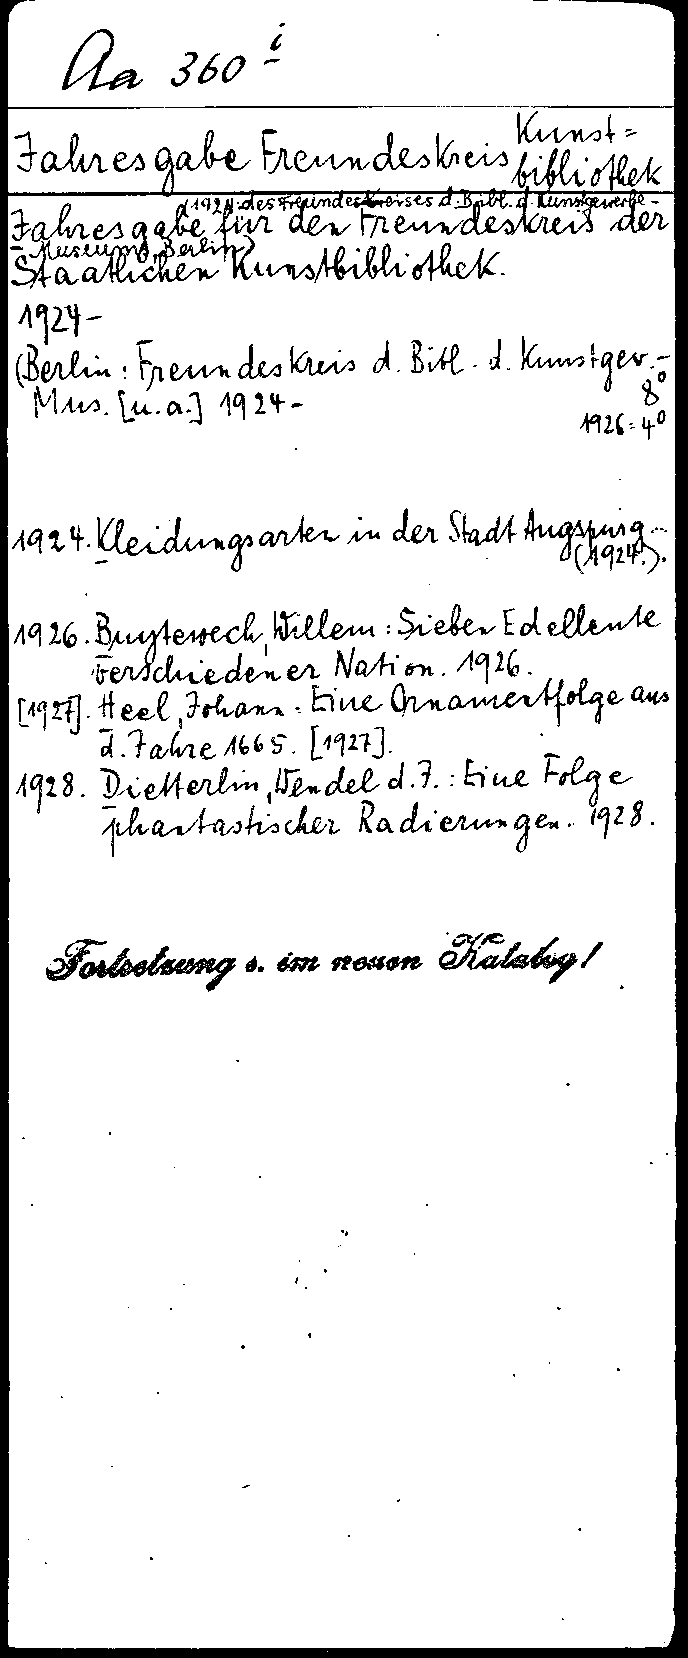 Aa 360 i
Jahresgabe Freundeskreis Kunst=
bibliothek
(1924: des Freundeskreises d. Bibl. d. Kunstgewerbe-
Jahresgabe für den Freundeskreis der
Museums, Berlin)
Staatlichen Kunstbibliothek.
1924-
(Berlin: Freundeskreis d. Bibl. d. Kunstgew.-
Mus. [u.a.] 1924- 8°
1926: 4°
1924. Kleidungsarten in der Stadt Augspurg...
(1924.).
1926. Buytewech, Willem: Sieben Edelleute
verschiedener Nation. 1926.
[1927]. Heel, Johann: Eine Ornamentfolge aus
d. Jahre 1665. [1927].
1928. Dietterlin, Wendel d. J.: Eine Folge
phantastischer Radierungen. 1928.
Fortsetzung s. im neuen Katalog!